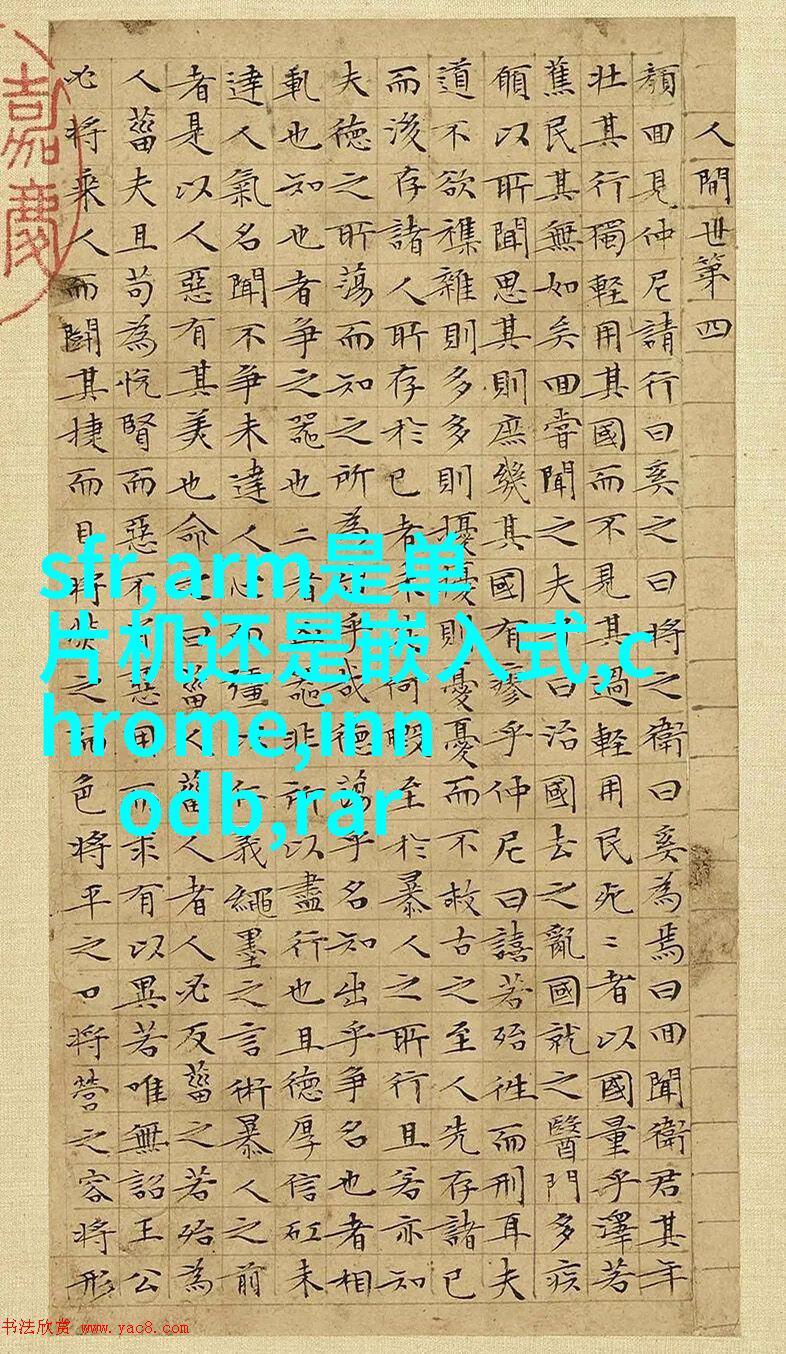 人間世第四
顏回見仲尼請行曰奚之曰將之衛曰奚為焉曰回聞衛君其年
壯其行獨輕用其國而不見其過輕用民死〻者以國量乎澤若
蕉民其無如矣回嘗聞之夫子曰治國去之亂國就之醫門多疾
願以所聞思其則庶幾其國有瘳乎仲尼曰譆若殆往而刑耳夫
道不欲襍雜則多多則擾擾則憂憂而不救古之至人先存諸己
而後存諸人所存於己者未何暇至於暴人之所行且若亦知
夫德之所蕩而知之所為乎哉德蕩乎名知出乎爭名也者相
軋也知也者爭之噐也二者噐非所以盡行也且德厚信矼未
達人氣名聞不爭未達人心而彊仁義繩墨之言術暴人之前
者是以人惡有其美也命之曰菑人菑人者人必反菑之若殆為
人菑夫且苟為悅賢而惡不惡用而求有以異若唯無詔王公
必將乘人而鬪其捷而目將熒之而色將平之口將營之容將形
嘉慶
sfr,arm是单
片机还是嵌入式,c
hrome,inn
odb,rar
书法欣赏 www.yac8.com